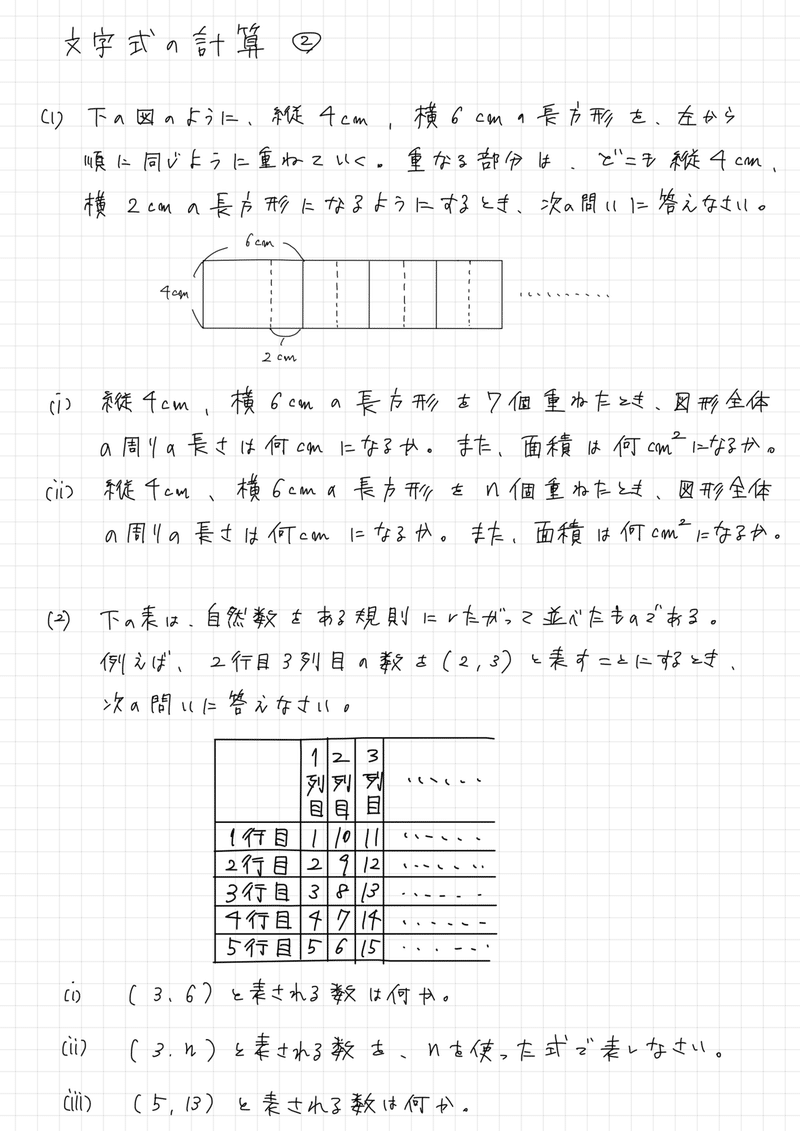 文字式の計算 ②
(1) 下の図のように、縦4cm, 横6cmの長方形を、左から
順に同じように重ねていく。重なる部分は、どこも縦4cm,
横2cmの長方形になるようにするとき、次の問いに答えなさい。
6cm
4cm
..........
2cm
(i) 縦4cm, 横6cmの長方形を7個重ねたとき、図形全体
の周りの長さは何cmになるか。また、面積は何cm²になるか。
(ii) 縦4cm、横6cmの長方形をn個重ねたとき、図形全体
の周りの長さは何cmになるか。また、面積は何cm²になるか。
(2) 下の表は、自然数をある規則にしたがって並べたものである。
例えば、2行目3列目の数を(2,3)と表すことにするとき、
次の問いに答えなさい。
1列目 2列目 3列目 ......
1行目 1 10 11 ......
2行目 2 9 12 ......
3行目 3 8 13 ......
4行目 4 7 14 ......
5行目 5 6 15 ......
(i) (3、6)と表される数は何か。
(ii) (3.n)と表される数を、nを使った式で表しなさい。
(iii) (5,13)と表される数は何か。